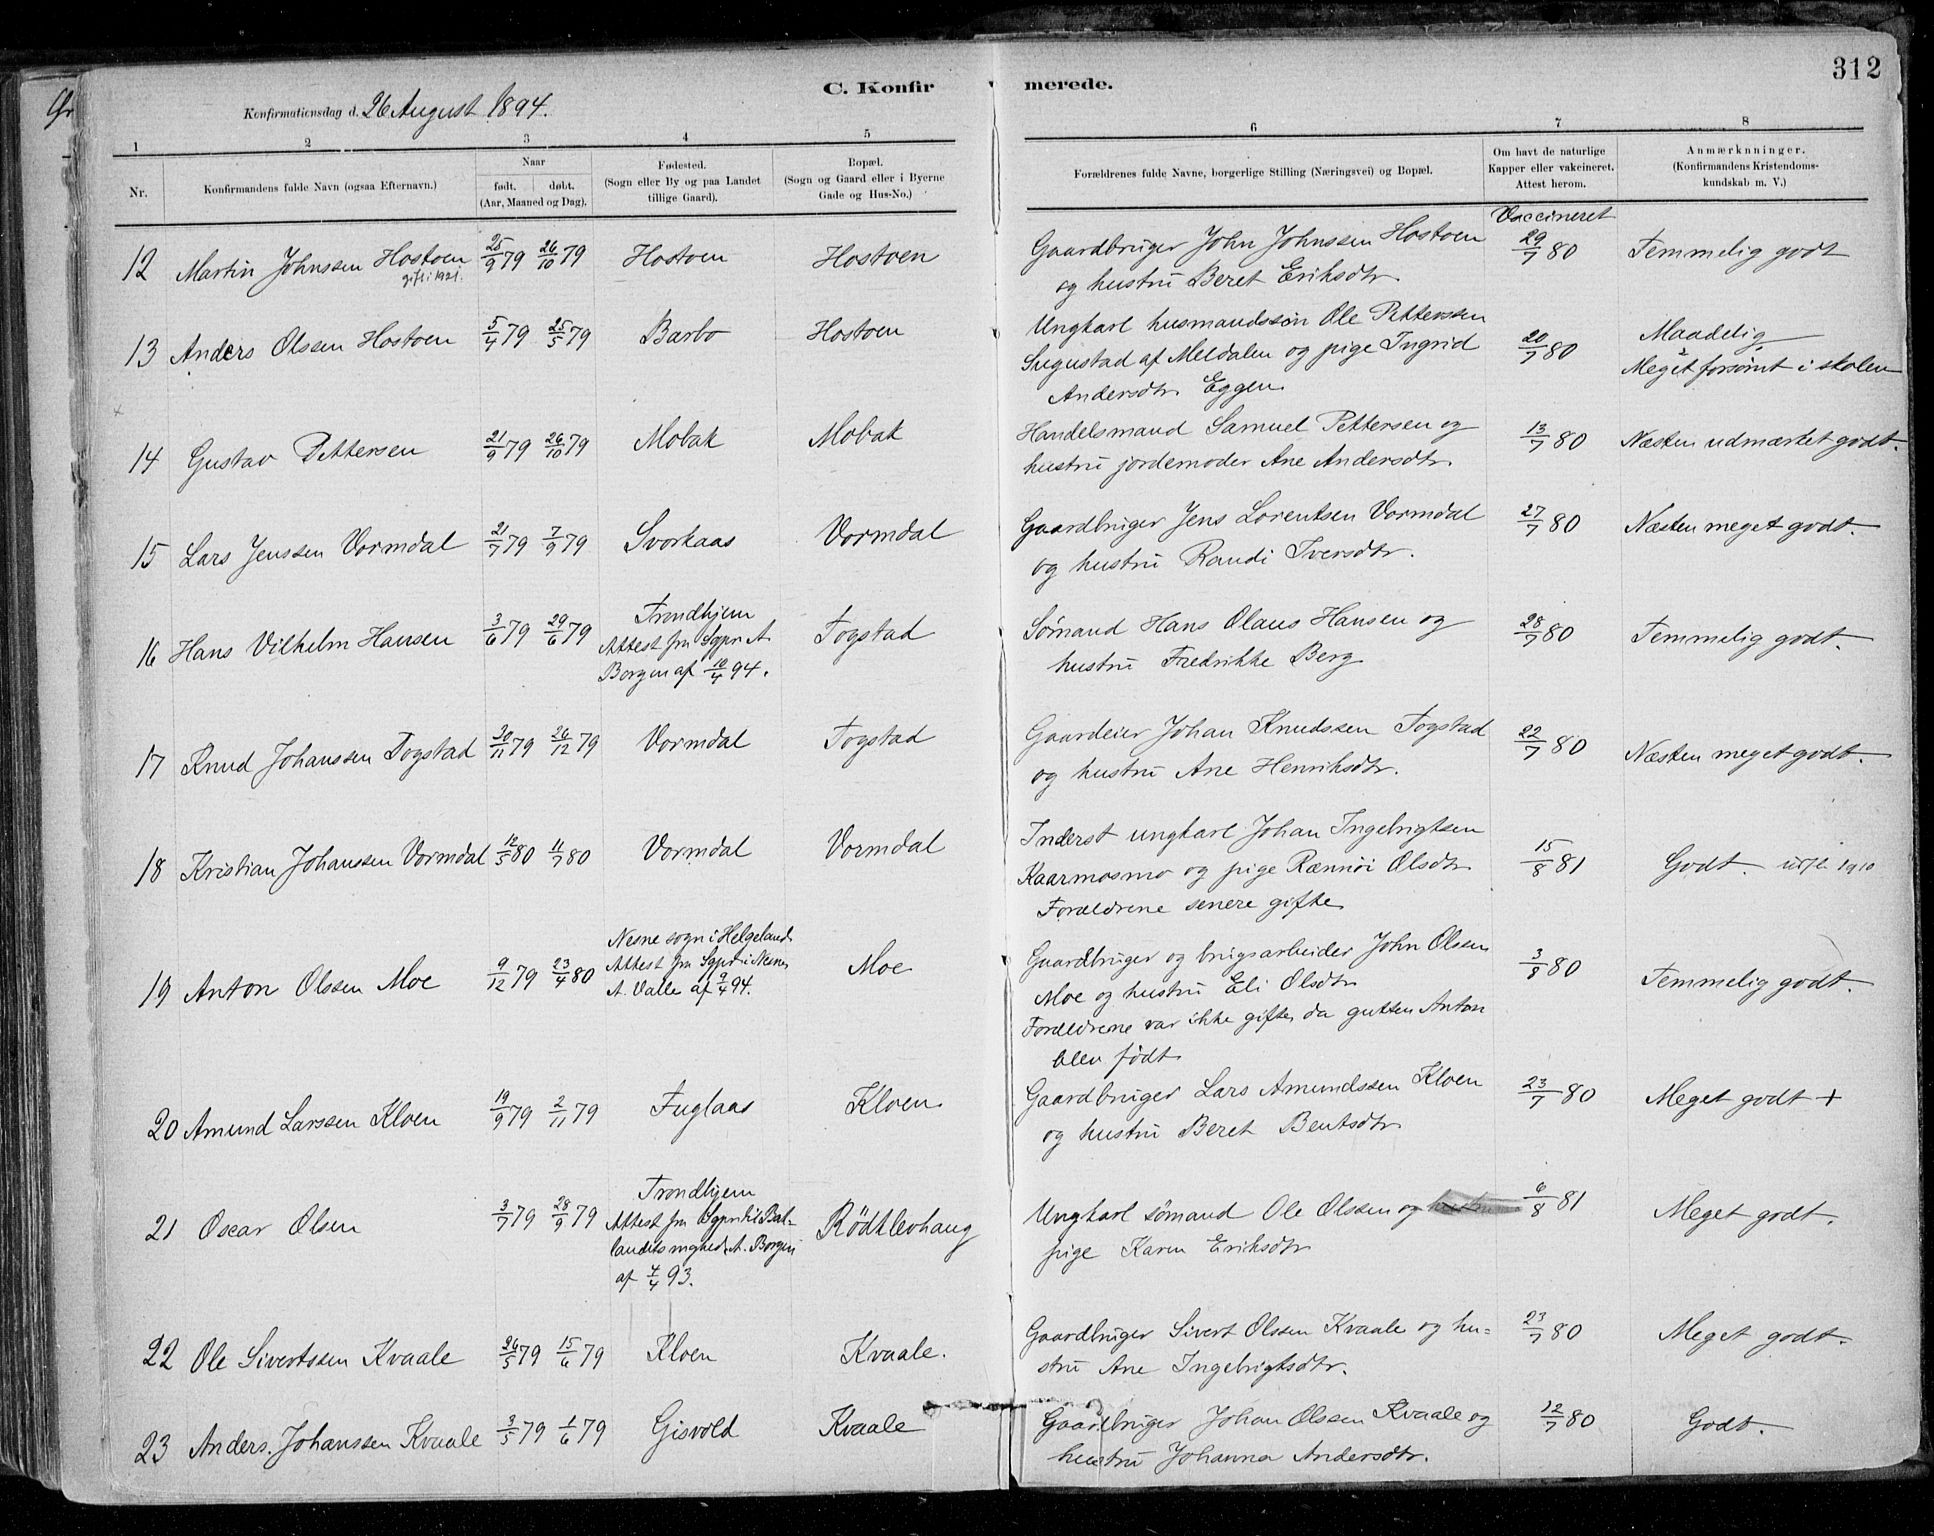 312
C. Konfirmerede.
Konfirmationsdag d. 26 August 1894.
1 2 3 4 5 6 7 8
Nr.
Konfirmandens fulde Navn (ogsaa Efternavn.)
Naar
født. døbt.
(Aar, Maaned og Dag).
Fødested.
(Sogn eller By og paa Landet
tillige Gaard).
Bopæl.
(Sogn og Gaard eller i Byerne
Gade og Hus-No.)
Forældrenes fulde Navne, borgerlige Stilling (Næringsvei) og Bopæl.
Om havt de naturlige
Kopper eller vakcineret.
Attest herom.
Anmærkninger.
(Konfirmandens Kristendoms-
kundskab m. V.)
Vaccineret
12 Martin Johnssen Hostoen 25/9 79 26/10 79 Hostoen Hostoen Gaardbruger John Johnssen Hostoen 29/7 80 Temmelig godt
gift i 1921.
og hustru Beret Eriksdtr.
13 Anders Olssen Hostoen 5/4 79 25/5 79 Barbo Hostoen Ungkarl husmandssøn Ole Petterssen 20/7 80 Maadelig
af Meldalen og pige Ingrid Meget forsømt i skolen
Andersdtr. Eggen
14 Gustav Pettersen 21/9 79 26/10 79 Mobak Mobak Handelsmand Samuel Pettersen og 13/7 80 Næsten udmærket godt.
hustru jordemoder Ane Andersdtr.
15 Lars Jenssen Vormdal 21/7 79 7/9 79 Svorkaas Vormdal Gaardbruger Jens Lorentsen Vormdal 27/7 80 Næsten meget godt.
og hustru Randi Iversdtr.
16 Hans Vilhelm Hansen 3/6 79 29/6 79 Trondhjem Togstad Sømand Hans Olaus Hansen og 28/7 80 Temmelig godt.
Attest fra Sgpr. A.
Borgen af 10/4 94.
hustru Fredrikke Berg
17 Knud Johanssen Togstad 30/11 79 26/12 79 Vormdal Togstad Gaardeier Johan Knudssen Togstad 22/7 80 Næsten meget godt.
og hustru Ane Henriksdtr.
18 Kristian Johanssen Vormdal 12/5 80 11/7 80 Vormdal Vormdal Inderst ungkarl Johan Ingebrigtsen 15/8 81 Godt. 1910
Kaarmosmo og pige Rønnøi Olsdtr
Forældrene senere gifte
19 Anton Olssen Moe 9/12 79 23/4 80 Nesne sogn i Helgeland Moe Gaardbruger og brugsarbeider John Olssen 3/8 80 Temmelig godt.
Attest fra Sgpr. i Nesne
A. Valle af 9/4 94.
Moe og hustru Eli Olsdtr
Forældrene var ikke gifte, da gutten Anton
blev født
20 Amund Larssen Kloen 19/9 79 2/11 79 Fuglaas Kloen Gaardbruger Lars Amundssen Kloen 23/7 80 Meget godt +
og hustru Beret Bentsdtr
21 Oscar Olsen 3/7 79 28/9 79 Trondhjem Rödklevhaug Ungkarl sømand Ole Olssen og 6/8 81 Meget godt.
Attest fra Sgpr. til Bak-
landets mghed. A. Borgen
af 4/4 93.
pige Karen Eriksdtr
22 Ole Sivertssen Kvaale 26/5 79 15/6 79 Kloen Kvaale. Gaardbruger Sivert Olssen Kvaale og hu- 23/7 80 Meget godt.
stru Ane Ingebrigtsdtr.
23 Anders Johanssen Kvaale 3/5 79 1/6 79 Gisvold Kvaale Gaardbruger Johan Olssen Kvaale og 12/7 80 Godt.
hustru Johanna Andersdtr.